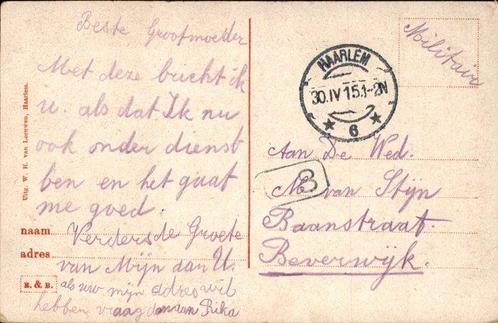 Beste Grootmoeder
Met deze bricht ik
u. als dat Ik nu
ook onder dienst
ben en het gaat
me goed.
naam
Verders de Groete
adres
van Mijn dan U.
als uw mijn adres wil
hebben vraag dan aan Rika
R. & B.
Uitg. W. H. van Leeuwen, Haarlem.
Militair
HAARLEM
30.IV 15.1-2N
★ 6 ★
3
Aan De Wed.
van Stijn
Baanstraat.
Beverwijk.